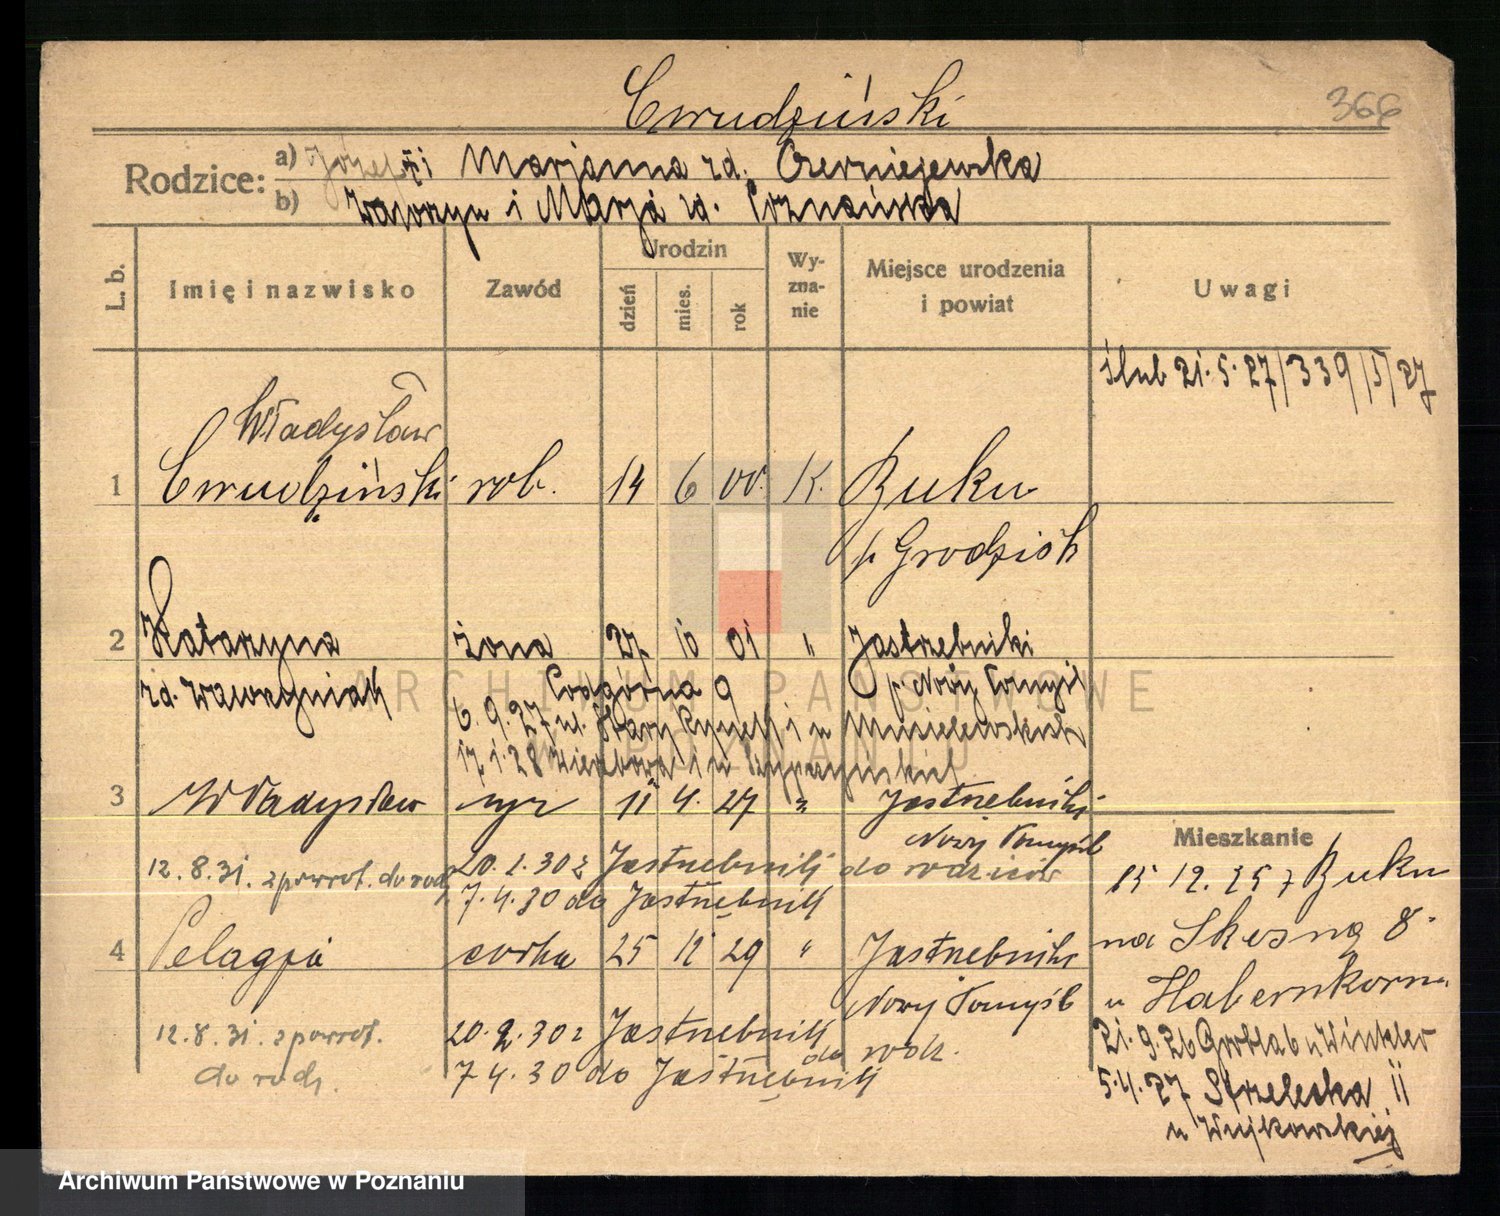 Cwudziński
366
Rodzice: a) Józef i Marjanna zd. Czerniejewska
b) Wawrzyn i Marja zd. Poznańska
L. b.
Imię i nazwisko
Zawód
Urodzin
dzień
mies.
rok
Wy-
zna-
nie
Miejsce urodzenia
i powiat
Uwagi
ślub 21.5.27/339/5/27
Władysław
1 Cwudziński rob. 14 6 00. K. Buku
p Grodzisk
2 Katarzyna żona 27 10 01 " Jastrzebniki
zd. Wawrzyniak p. Nowy Tomyśl
Podgórna 9
6.9.27 ul. Stary Rynek i u Musielewskich
17.1.28 Wierzbowa
3 Władysław syn 11 4. 27 " Jastrzebniki
Nowy Tomyśl
12.8.31. z powrot. do rodz 20.2.30 z Jastrzebnik do rodziców
7.4.30 do Jastrzębnik
4 Pelagja córka 25 12 29 " Jastrzebniki
Nowy Tomyśl
12.8.31. z powrot. 20.2.30 z Jastrzebnik
do rodz. 7 4.30 do Jastrzębnik do rodz.
Mieszkanie
15 12.25 z Buku
na 8.
u Habernkorna
21.9.26 u Winkler
5.4.27 Strzelecka 11
u Wujkowskiej
ARCHIWUM PAŃSTWOWE
W POZNANIU
Archiwum Państwowe w Poznaniu